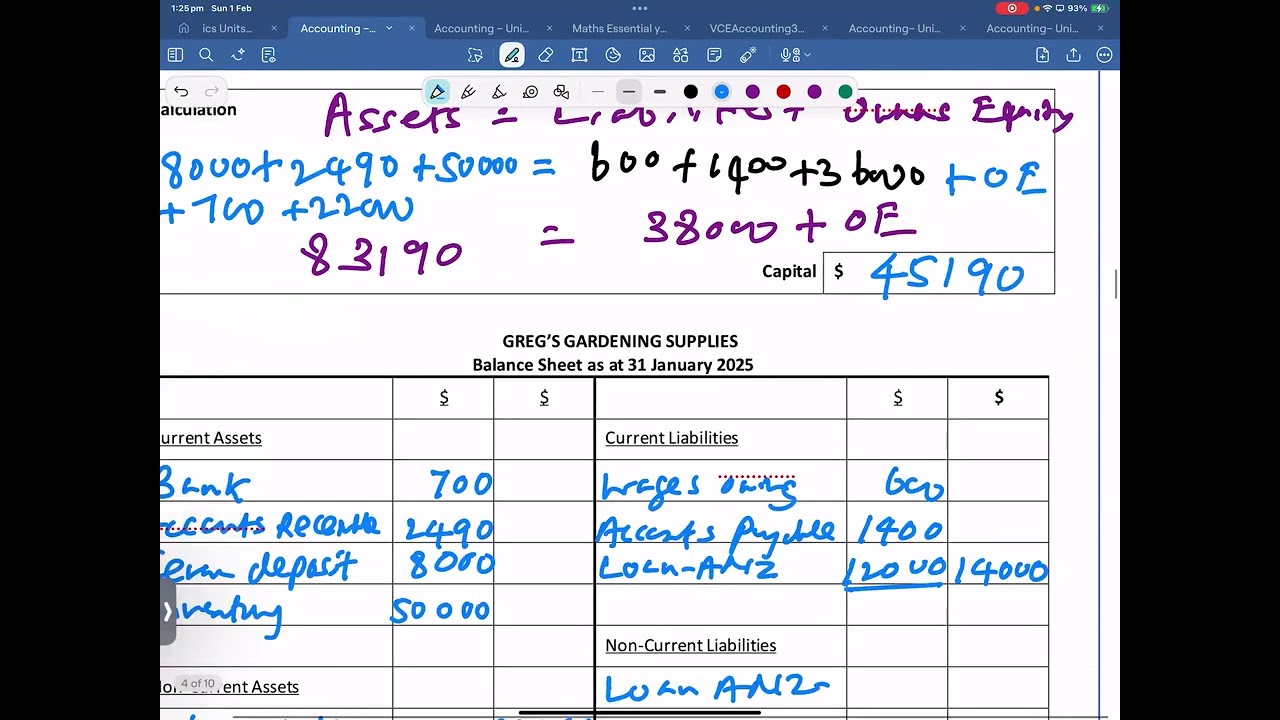 1:25 pm Sun 1 Feb
93%
ics Units...
Accounting –...
Accounting – Uni...
Maths Essential y...
VCEAccounting3...
Accounting– Uni...
Accounting– Uni...
alculation
Assets = Liabilities + Owners Equity
8000+2490+50000 = 600+1400+36000 + OE
+700 +22000
83190 = 38000 + OE
Capital $ 45190
GREG'S GARDENING SUPPLIES
Balance Sheet as at 31 January 2025
$ $ $ $
urrent Assets Current Liabilities
Bank 700 Wages owing 600
accounts 2490 Accounts Payable 1400
Term deposit 8000 Loan-ANZ 12000 14000
nventory 50000
Non-Current Liabilities
Loan ANZ
on-Current Assets
4 of 10